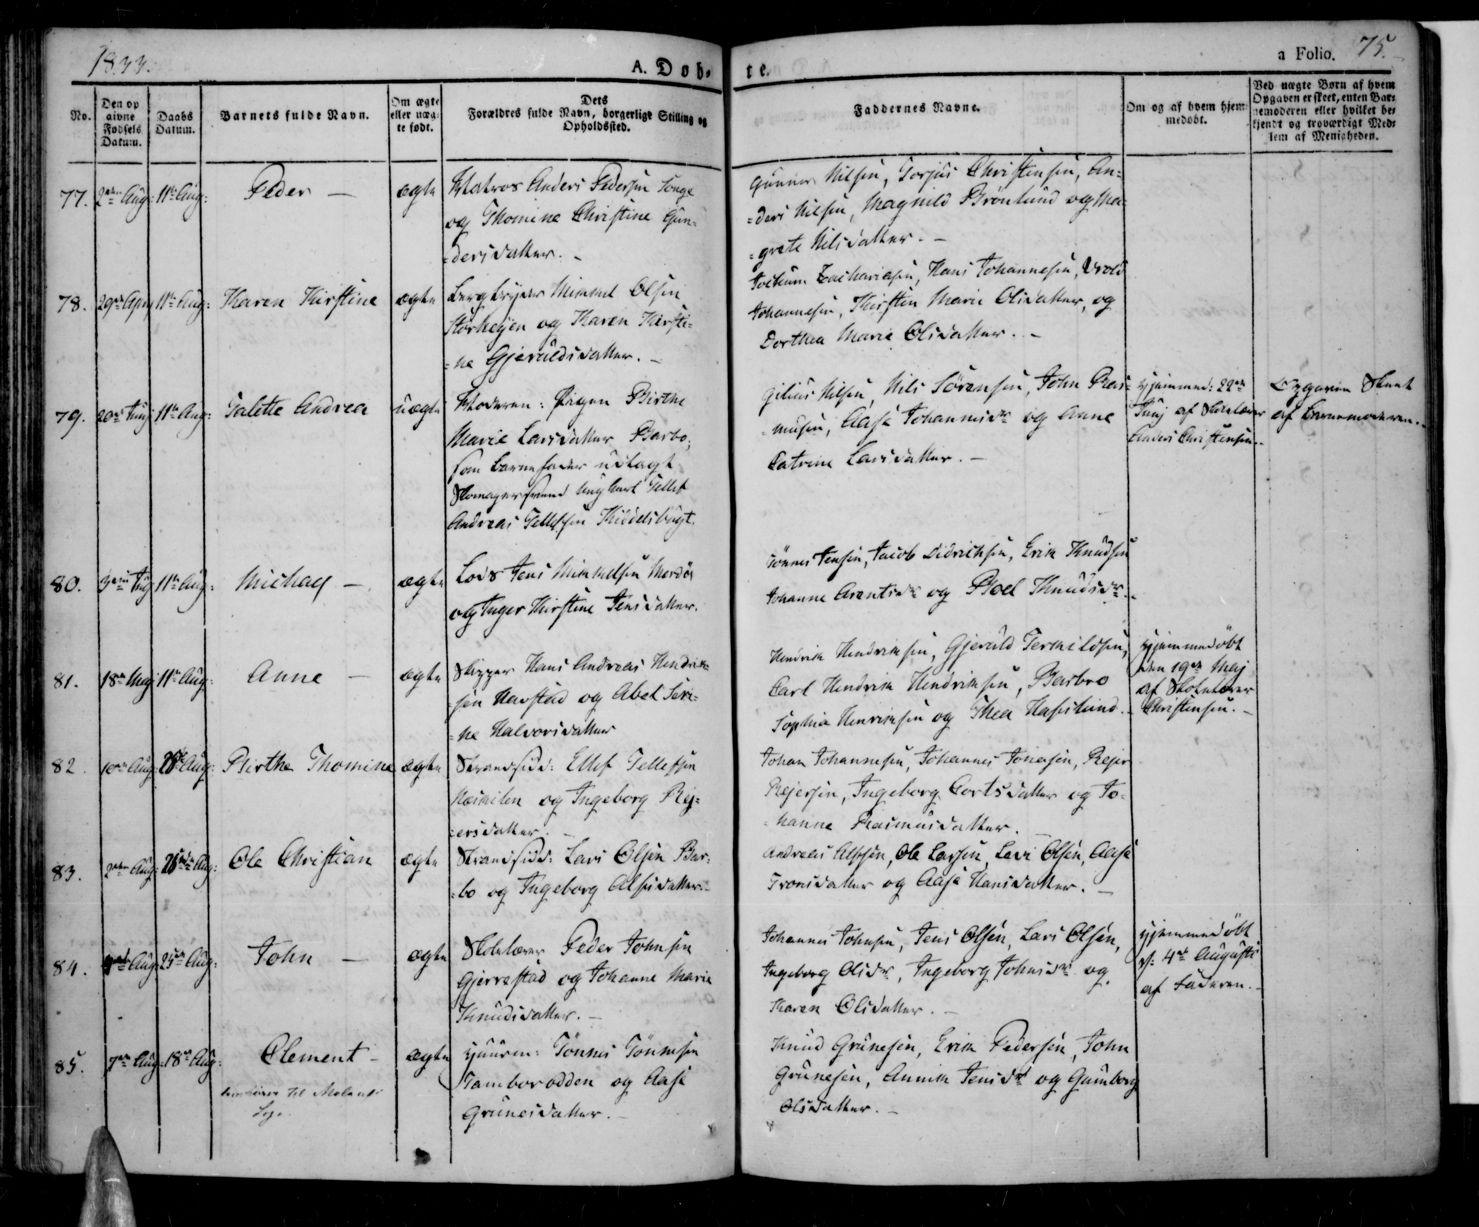 1833.
A. Døb-
te.
a Folio. 75.
No.
Den op
givne
Fødsels
Datum.
Daabs
Datum.
Barnets fulde Navn.
Om ægte
eller uæg-
te født.
Dets
Forældres fulde Navn, borgerlige Stilling og
Opholdssted.
Faddernes Navne.
Om og af hvem hjem-
medøbt.
Ved uægte Børn af hvem
Opgaven er skeet, enten Bar-
nemoderen eller hvilket be-
kjendt og troværdigt Med-
lem af Menigheden.
77. 2den Aug: 11te Aug: Peder — ægte
Matros Anders Pedersen Songe
og Thomine Christine Gun-
-dersdatter. -
Gunner Nilsen, Torjus Christensen, An-
-ders Nilsen, Magnild Brønlund og Ma-
-grete Nilsdatter. -
78. 29de 11te Aug: Karen Kirstine ægte
Bergbryder Mimmel Olsen
Storhejen og Karen Kirsti-
-ne Gjeruldsdatter. -
Jochum Zachariasen, Hans Johannesen, Wrold
Johannesen, Kirsten Marie Olsdatter, og
Dorthea Marie Olsdatter. -
79. 20de Junj 11te Aug: Talette Andrea uægte
Moderen: Pigen Birthe
Marie Larsdatter Barbo,
som Barnefader udlagt
Skomagersvend Ungkarl Tellef
Andreas Tellefsen Kiddelsbugt.
Gilius Nilsen, Nils Sørensen, John Ras-
-musen, Aase Johannesdr og Anne
Catrine Larsdatter. -
Hjemmed: 22de
Junj af Skolelærer
Anders Christensen. -
Opgaven Skeet
af Barnemoderen. -
80. 3die 11te Aug: Michael — ægte
Lods Jens Mikkelsen Merdø
og Inger Kirstine Jensdatter.
Tønnes Jensen, Jacob Didriksen, Erik Knudsen
Johanne Arentsdr og Boel Knudsdr. -
81. 18de Maj 11te Aug: Anne — ægte
Skipper Hans Andreas Hendrik-
sen Havstad og Abel Seri-
-ne Halvorsdatter
Hendrik Hendriksen, Gjeruld Terkildsen,
Carl Hendrik Hendriksen, Barbro
Sophia Henriksen og Thea Haslund. -
Hjemmedøbt
den 19de Maj
af Skolelærer
Christensen. -
82. 10de Aug: Aug: Birthe Thomine ægte
Strandsidd: Ellef Tellefsen
Næskilen og Ingeborg Rej-
-ersdatter. -
Johan Johannesen, Johannes Jonasen, Rejer
Rejersen, Ingeborg Cortsdatter og Jo-
-hanne Rasmusdatter.
83. 2den Aug: Aug: Ole Christian ægte
Strandsidd: Lars Olsen Bar-
-bo og Ingeborg Alfsdatter. -
Andreas Alfsen, Ole Larsen, Lars Olsen, Aase
Tronsdatter og Aase Hansdatter. -
84. Aug: 25de Aug: John — ægte
Skolelærer Peder Johnsen
Gjerrestad og Johanne Marie
Knudsdatter. -
Johannes Johnsen, Jens Olsen, Lars Olsen,
Ingeborg Olsdr, Ingeborg Johnsdr og
Karen Olsdatter. -
Hjemmedøbt
d. 4de Augusti
af Faderen. -
85. 7de Aug: 18de Aug: Clement - ægte
til
Sogn
Huusm: Tønnes Tønnesen
Tamborodden og Aase
Grunesdatter. -
Knud Grunesen, Erik Pedersen, John
Grunesen, Annik Jensdr og Gunborg
Olsdatter. -